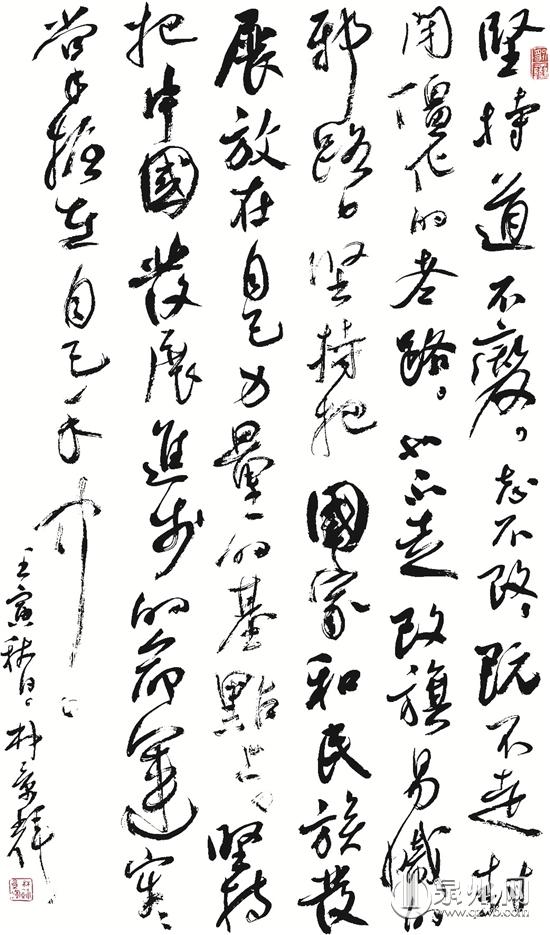 堅持道不變，志不改，既不走封
闭僵化的老路，也不走改旗易幟的
邪路，坚持把國家和民族發
展放在自己力量的基點上，堅持
把中國發展進步的命運牢牢
掌握在自己手中。
壬寅秋日。林景
泉州网
www.qzwb.com